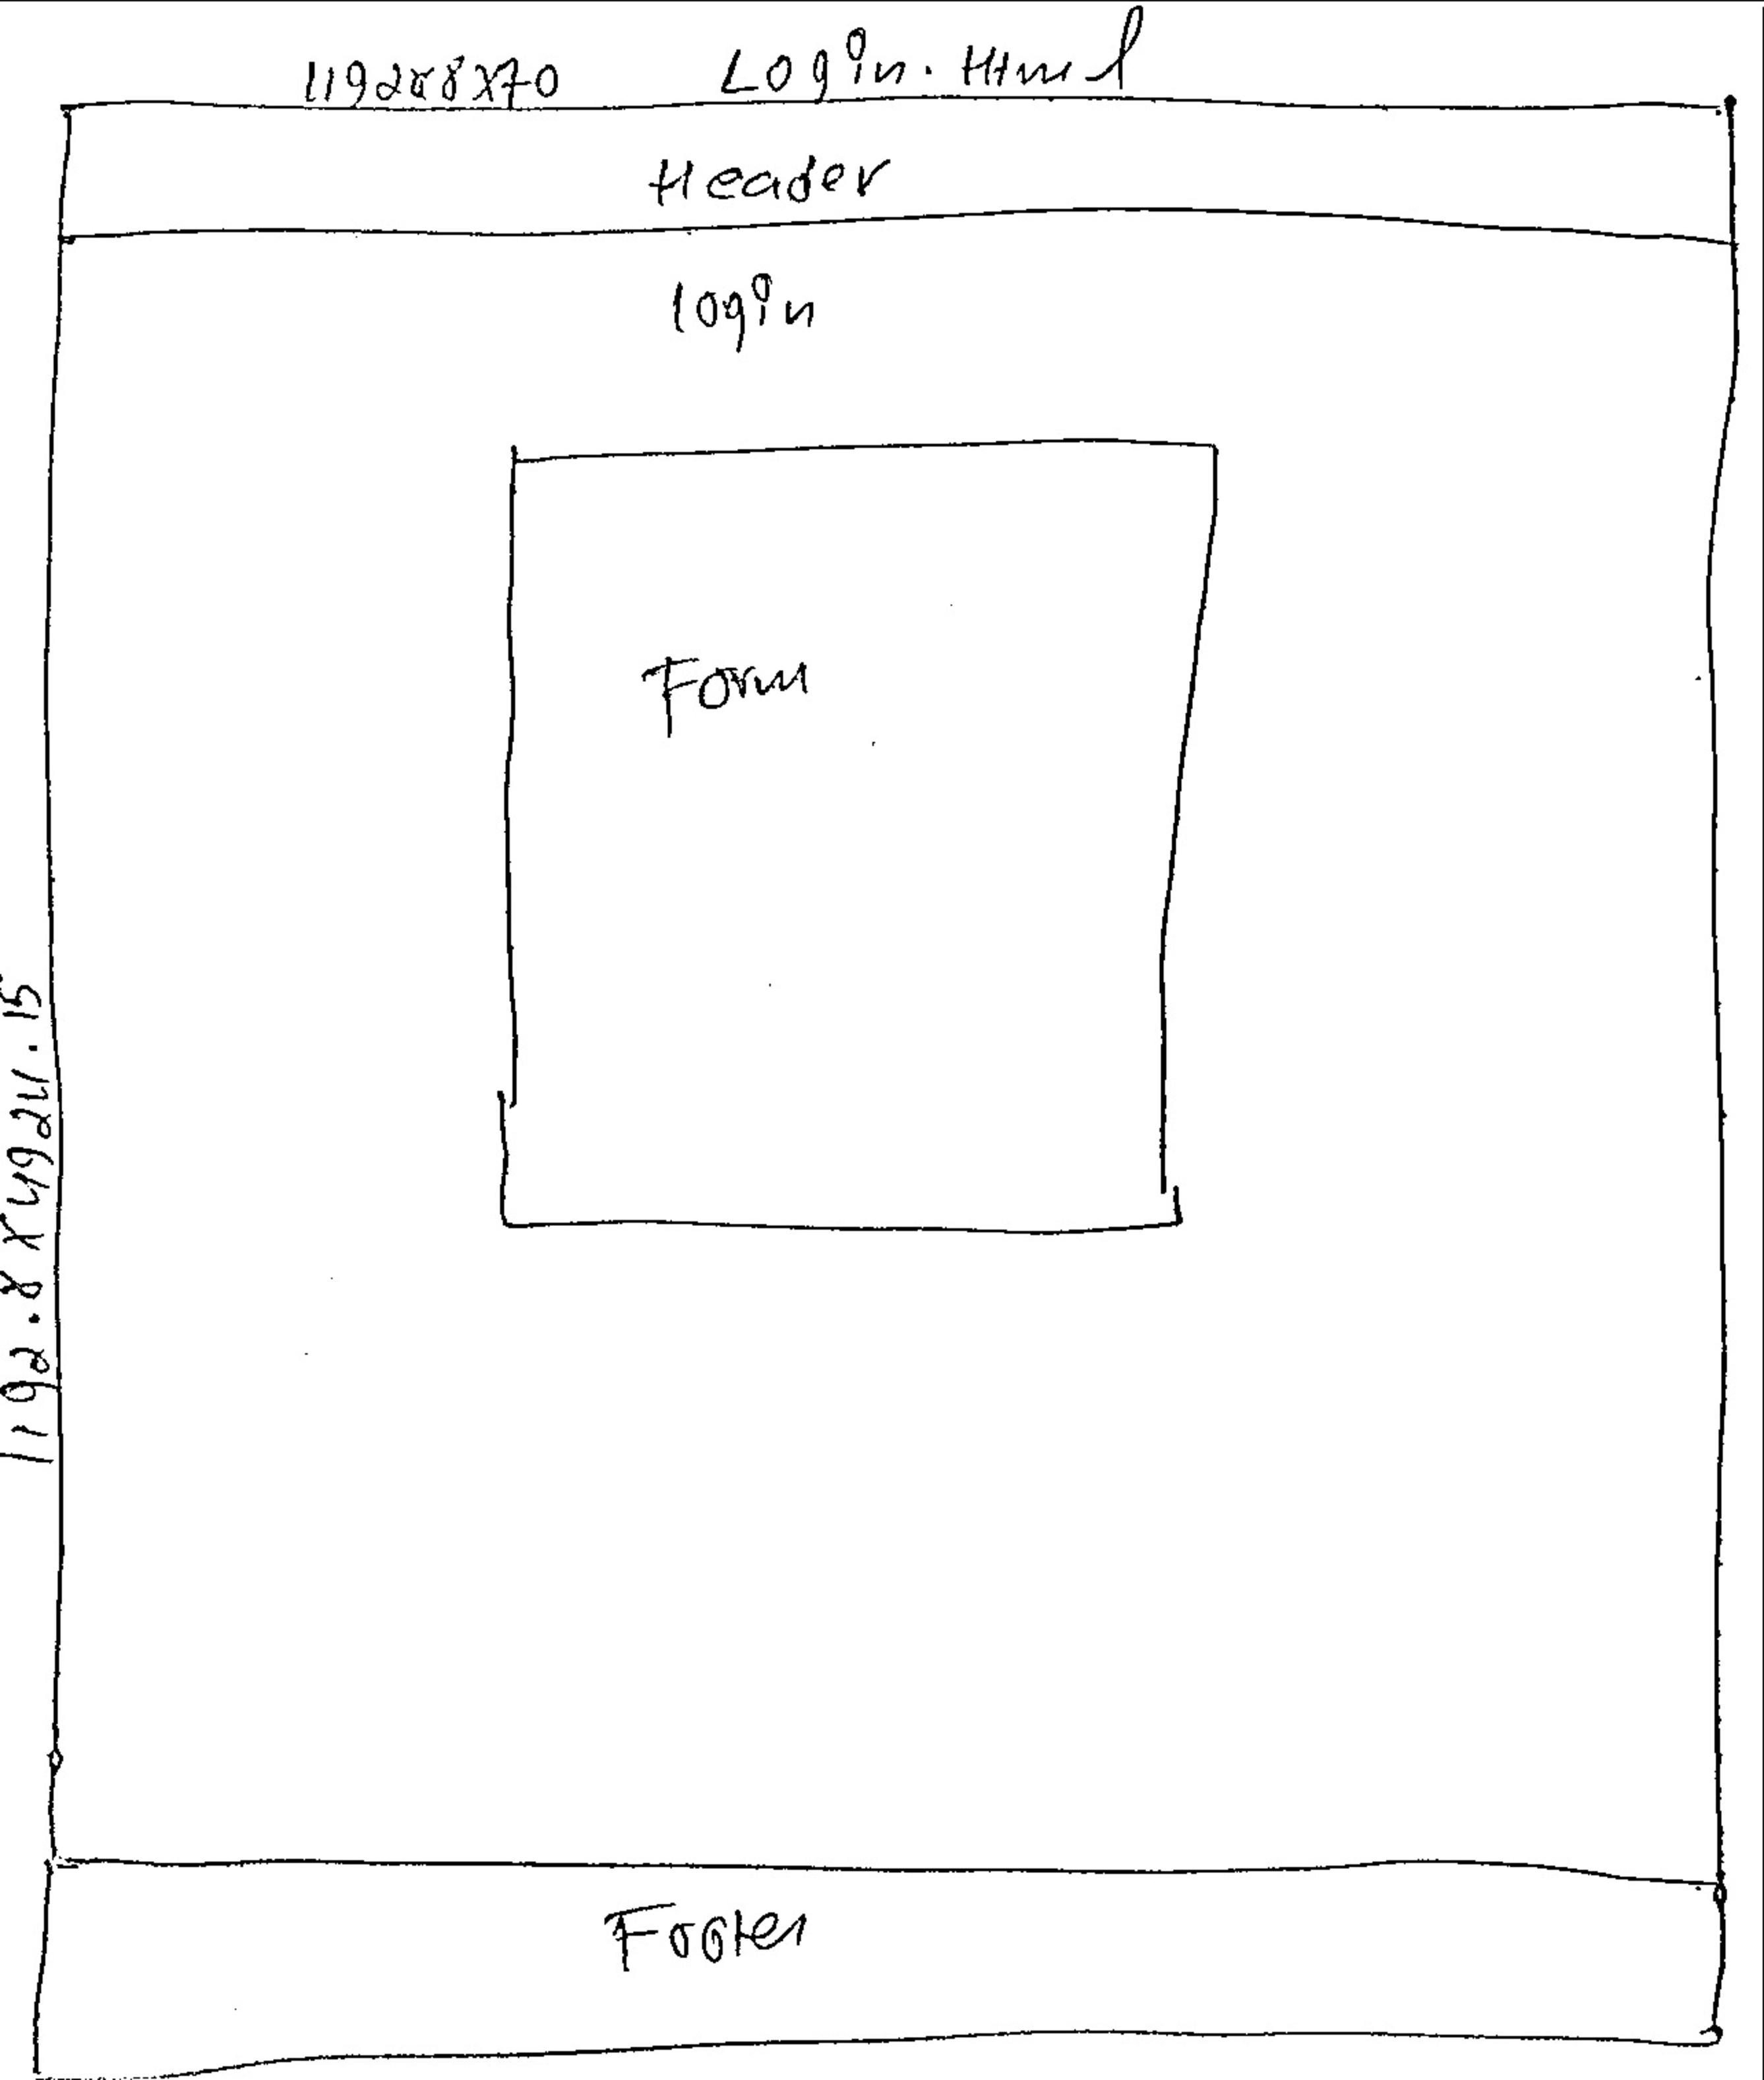 1192x8x70 Login.Html
Header
login
Form
1192.8x4924.15
Footer